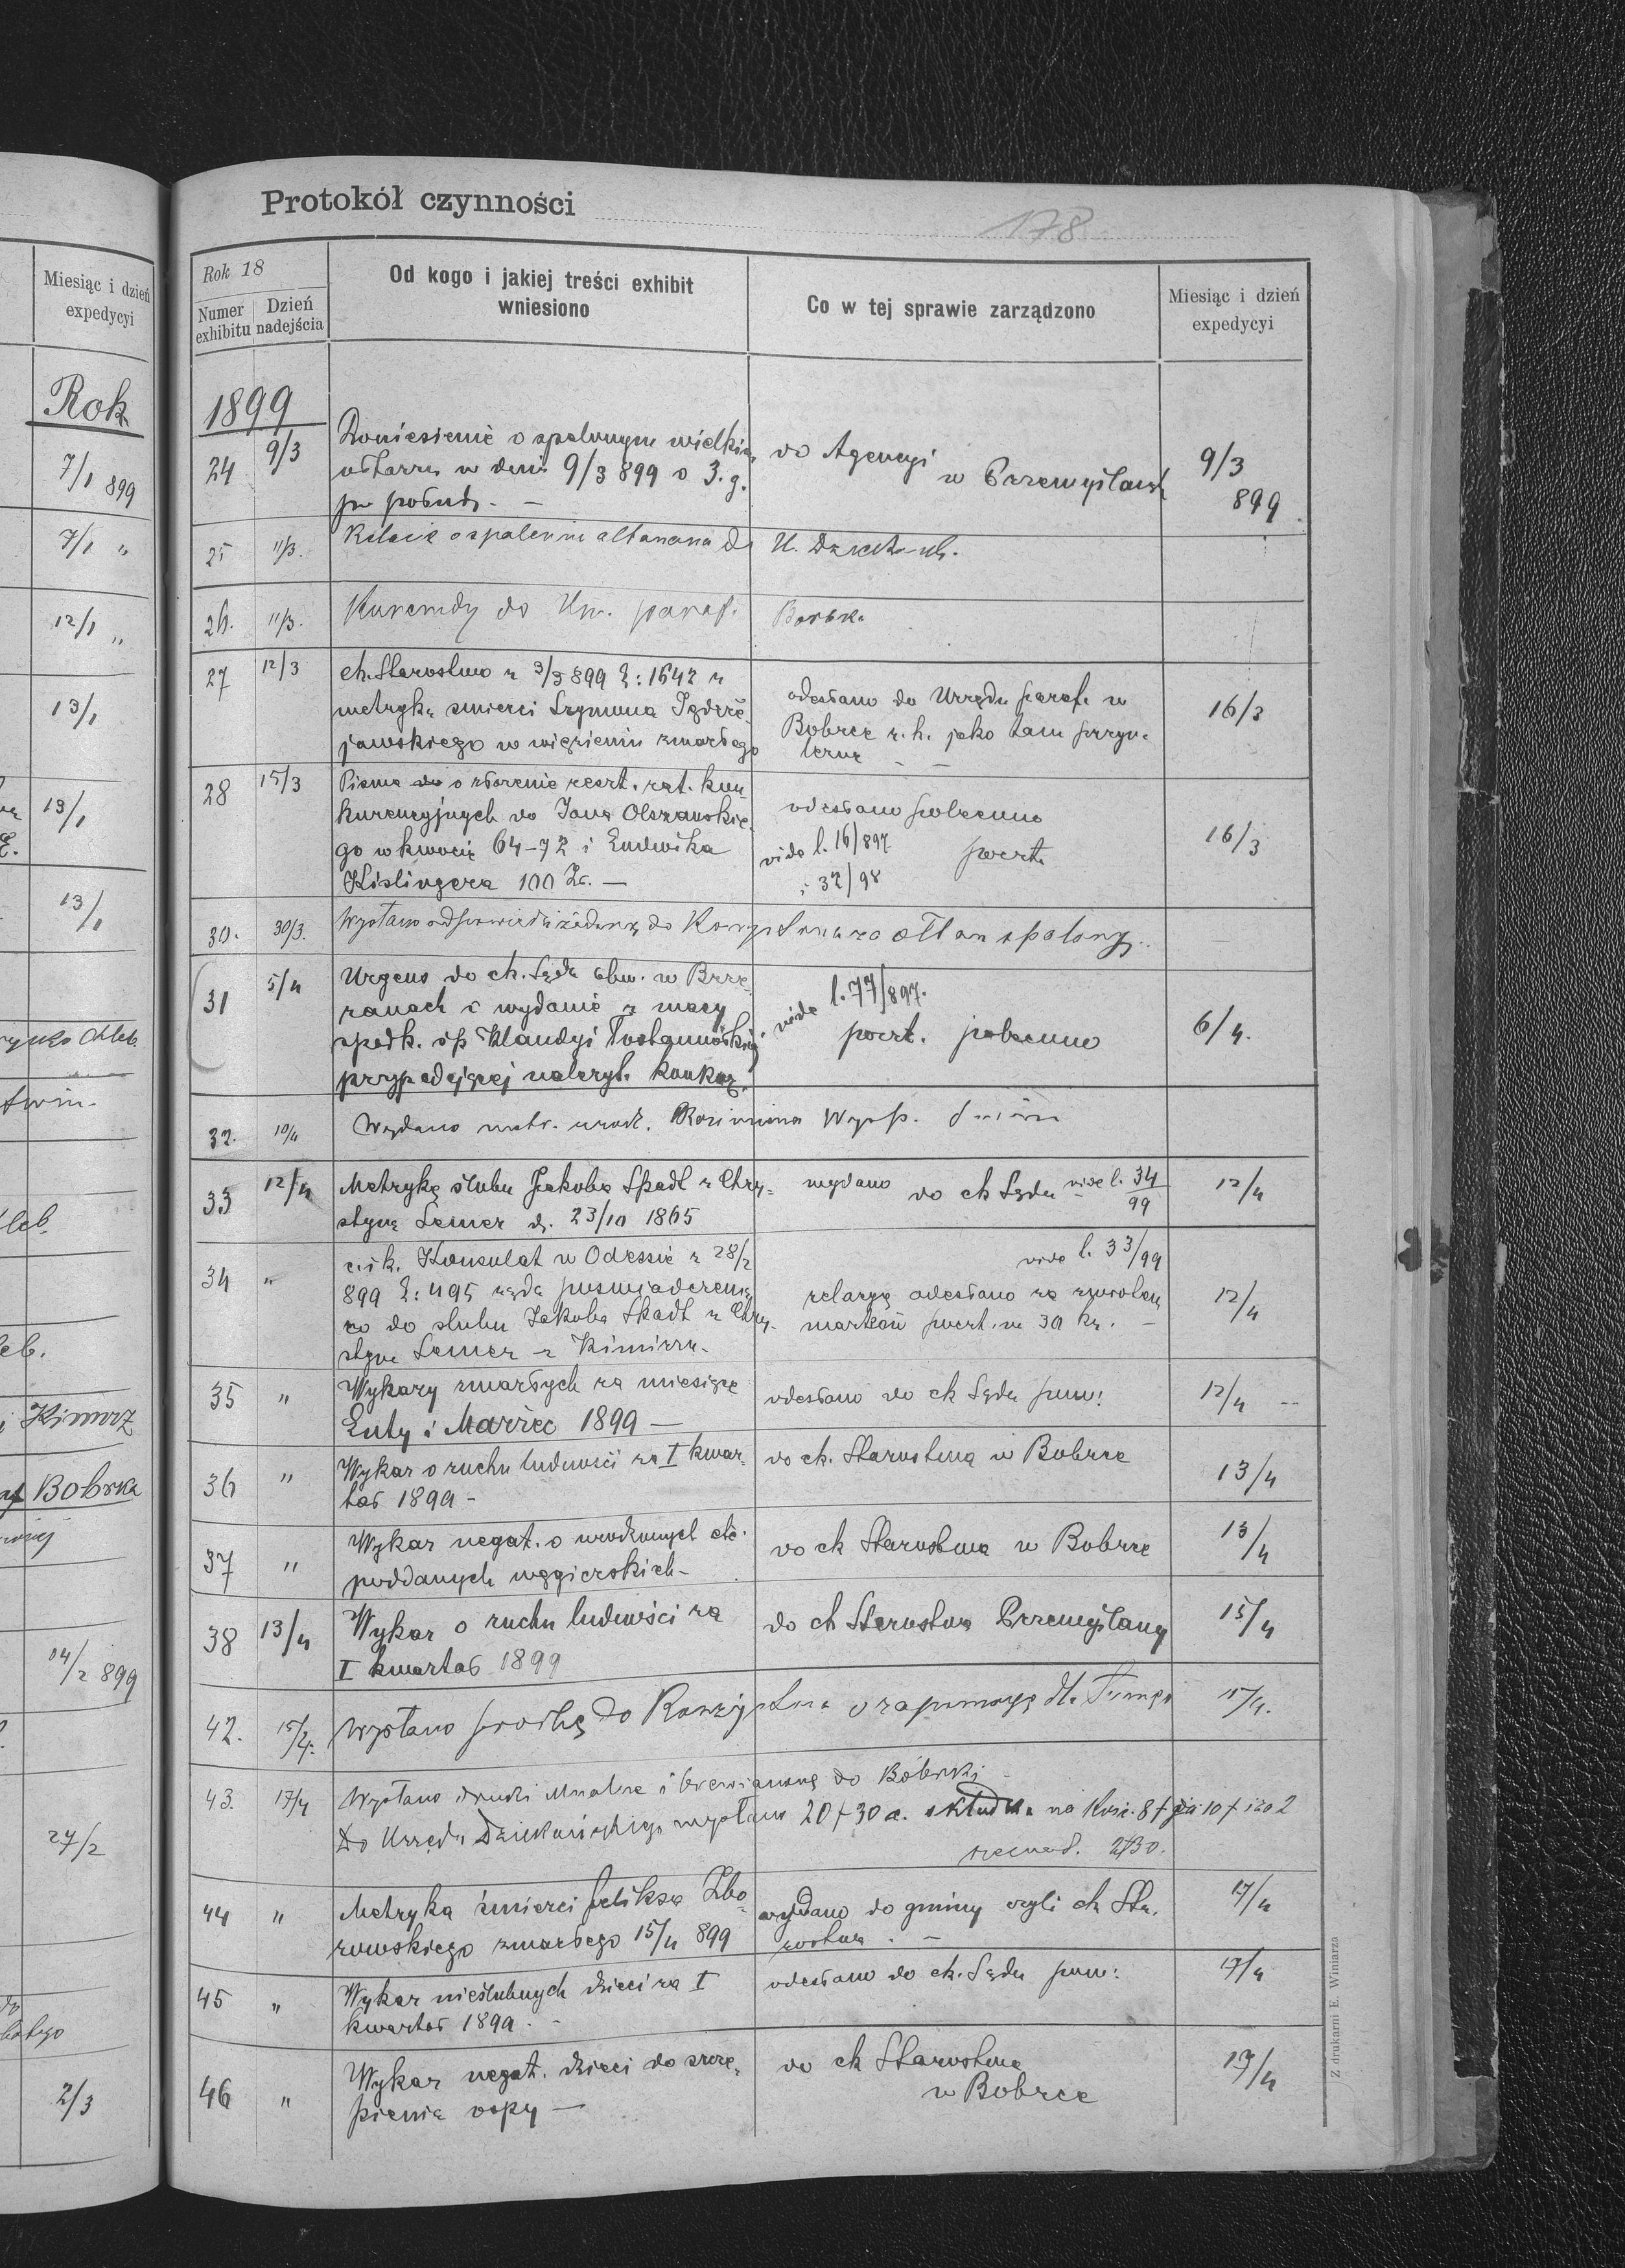 Protokół czynności
178
Miesiąc i dzień
expedycyi
Rok
7/1 899
7/1 "
12/1 "
13/1
13/1
13/1
Kimirz
Bobrka
14/2 899
27/2
2/3
Rok 18
Numer exhibitu
Dzień nadejścia
Od kogo i jakiej treści exhibit
wniesiono
Co w tej sprawie zarządzono
Miesiąc i dzień
expedycyi
1899
24 9/3 Doniesienie o spalonym wielkim
ołtarzu w dniu 9/3 899 o 3. g.
po połud. —
do Agencyi
w Przemyślanach
9/3
899
25 11/3. Relacie o spaleniu altana do U. Dziek.
26. 11/3. Kurendy do Urz. paraf. Bobrka
27 12/3 ck. Starostwo z 3/3 899 L: 1642 z
metryką smierci Szymona Jędrze-
jowskiego w więzieniu zmarłego
odesłano do Urzędu paraf. w
Bobrce r. h. jako tam przyn.
16/3
28 15/3 Pismo do o złożenie reszt. rat. kon-
kurencyjnych do Jana Olszańskie-
go w kwocie 64-72 i Ludwika
Kislingera 100 Zł. —
odesłano polecono
vide l. 16/897 poczt.
i 32/98
16/3
30. 30/3. Wysłano odpowiedź żądaną do Konsystorza za ołtarz spalony.
31 5/4 Urgens do ck. Sądu obw. w Brze-
żanach o wydanie z masy
spadk. śp Klaudyi
przypadającej należyt. konkur.
vide l. 77/897.
poczt. polecono
6/4.
32. 10/4 Wydano metr. urodz.
33 12/4 Metrykę ślubu Jakoba Skadl z Chry-
styną Lemer d. 23/10 1865
wydano do ck Sądu vide l. 34/99
12/4
34 " c. i k. Konsulat w Odessie z 28/2
899 L: 495 żąda poświadczenia
co do ślubu Jakoba Skadl z Chry-
styną Lemer z Kimirza.
vide l. 33/99
relacyę odesłano za zwrotem
markców poczt. na 30 kr. —
12/4
35 " Wykazy zmarłych za miesiące
Luty i Marzec 1899 —
odesłano do ck Sądu pow:
12/4
36 " Wykaz o ruchu ludności za I kwar-
tał 1899 -
do ck. Starostwa w Bobrce
13/4
37 " Wykaz negat. o urodzonych etc.
poddanych węgierskich -
do ck Starostwa w Bobrce
13/4
38 13/4 Wykaz o ruchu ludności za
I kwartał 1899
do ck Starostwa Przemyślany
15/4
42. 15/4. Wysłano prośbę do Konsystorza o zapomogę dla
15/4.
43. 17/4 Wysłano druki i brewianową do Bóbrki
Do Urzędu Dziekańskiego wysłano 20 f 30 c. składka na Kość. 8 f
44 " Metryka śmierci Feliksa Zbo-
rowskiego zmarłego 15/4 899
wydano do gminy czyli ck Sta-
rostwa . —
17/4
45 " Wykaz nieślubnych dzieci za I
kwartał 1899. -
odesłano do ck. Sądu pow:
17/4
46 " Wykaz negat. dzieci do szcze-
pienia ospy —
do ck Starostwa
w Bobrce
17/4
Z drukarni E. Winiarza